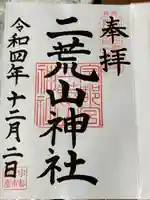 奉拝
二荒山神社
令和四年十二月二日